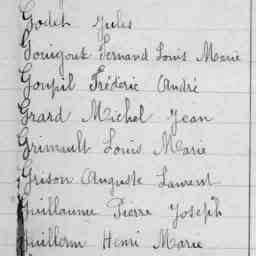 Godet Jules
Gouigoux Fernand Louis Marie
Goupil Fréderic André
Grard Michel Jean
Grimault Louis Marie
Grison Auguste Laurent
Guillaume Pierre Joseph
Guillerm Henri Marie